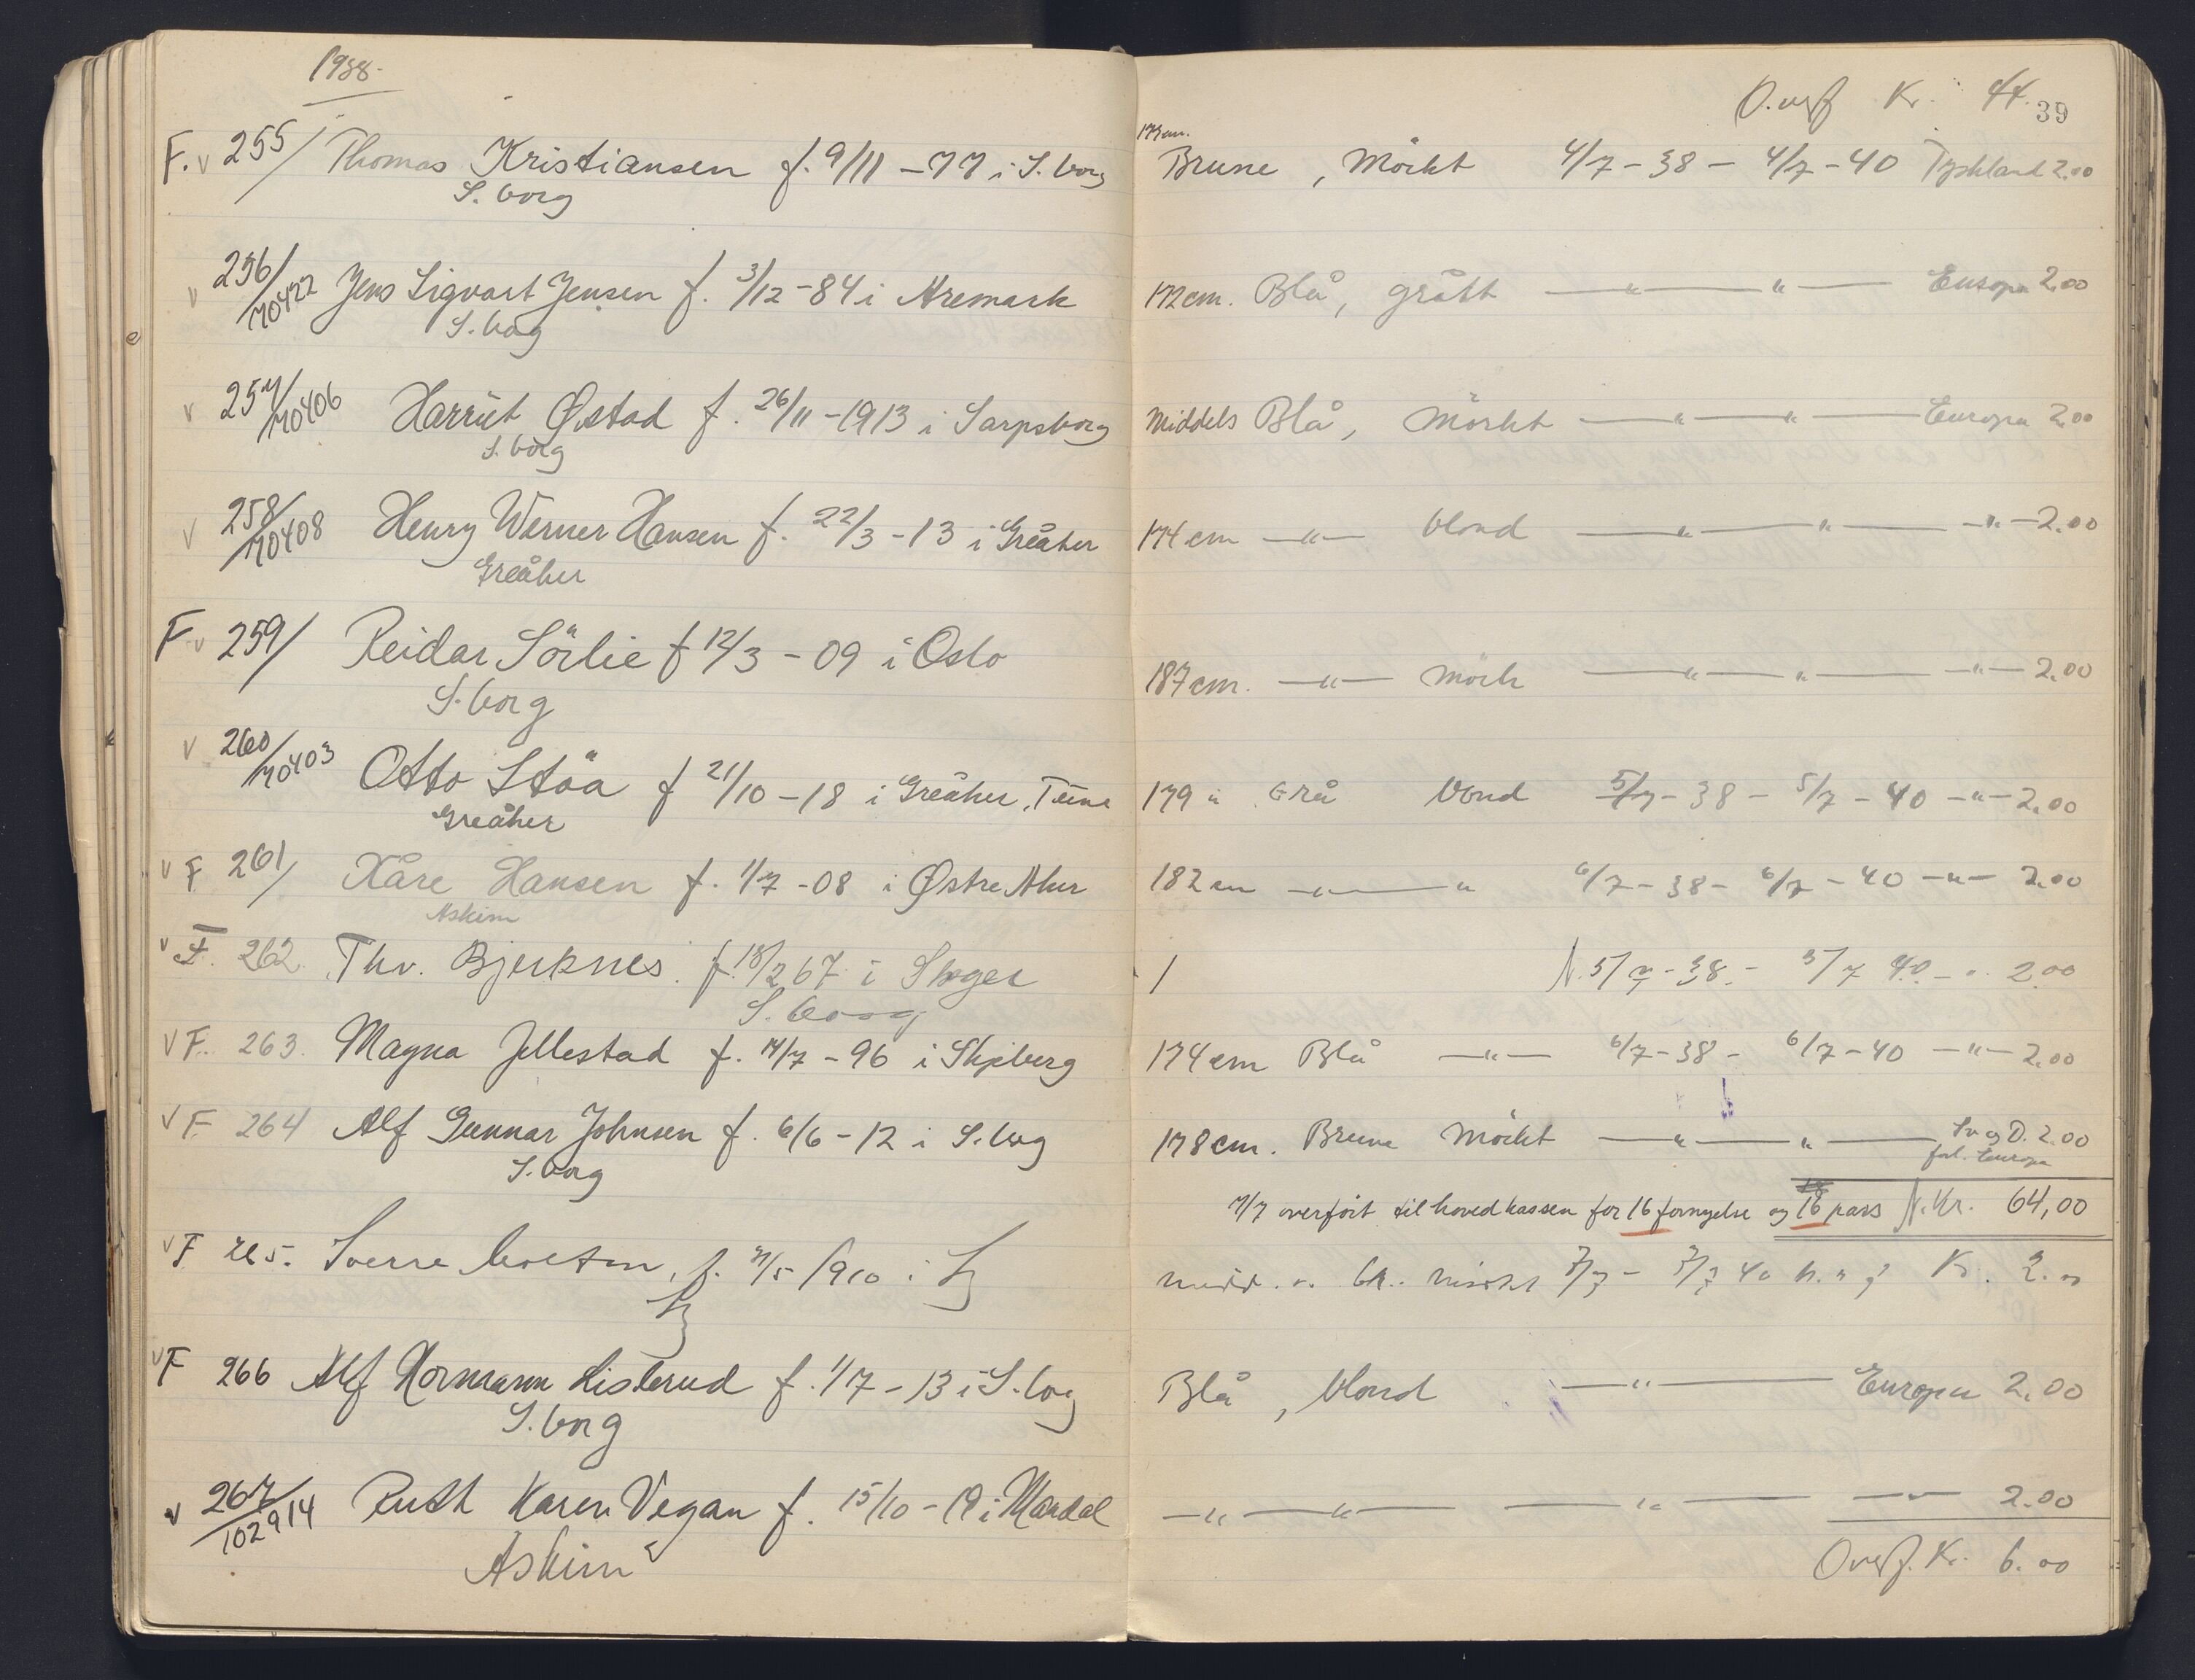 1938.
O.verf Kr. 44.
39
F. v 255/ Thomas Kristiansen f. 9/11 - 77 i S.borg
S.borg
173cm.
Brune, Mörkt 4/7 - 38 - 4/7 - 40 Tyskland 2.00
v 256/70422 Jens Sigvart Jensen f. 3/12 - 84 i Aremark
S.borg
172cm. Blå, grått — " — " — Europa 2.00
v 257/70406 Harriet Østad f. 26/11 - 1913 i Sarpsborg
S.borg
Middels Blå, Mörkt — " — " — Europa 2.00
v 258/70408 Henry Werner Hansen f. 22/3 - 13 i Greåker
Greåker
174cm — " — blond — " — " — — " — 2.00
F v 259/ Reidar Sörlie f 12/3 - 09 i Oslo
S.borg
187cm. — " — Mörk — " — " — — " — 2.00
v 260/70403 Otto Stöa f 21/10 - 18 i Greåker, Tune
Greåker
179 " Grå blond 5/7 - 38 - 5/7 - 40 — " — 2.00
v F 261/ Kåre Hansen f. 1/7 - 08 i Østre
Askim
182cm — " — " 6/7 - 38 - 6/7 - 40 — " — 2.00
v F. 262. Thv. Bjerknes. f. 18/2 67 i Skoger
S.borg
/ N. 5/7 - 38. - 5/7 40 - " 2.00
v F. 263. Magna Jellestad f. 14/7 - 96 i Skjeberg
174cm Blå — " — 6/7 - 38 - 6/7 - 40 — " — 2.00
v F. 264 Alf Gunnar Johnsen f. 6/6 - 12 i S.borg
S.borg
178cm. Brune Mörkt — " — " — Sv og D. 2.00
Europa
7/7 overfört til hovedkassen for 16 fornyelse og 16 pass N.Kr. 64,00
v F 265. Sverre f. 7/5 1910 i
7/7 - 7/7 40 Kr. 2.00
v F 266 Alf Normann Lislerud f. 1/7 - 13 i S.borg
S.borg
Blå, blond — " — Europa 2.00
v 267/102914 Ruth Karen Vegan f. 15/10 - 19 i Mandal
Askim
— " — " — — " — — " — 2.00
Overf. Kr. 6.00